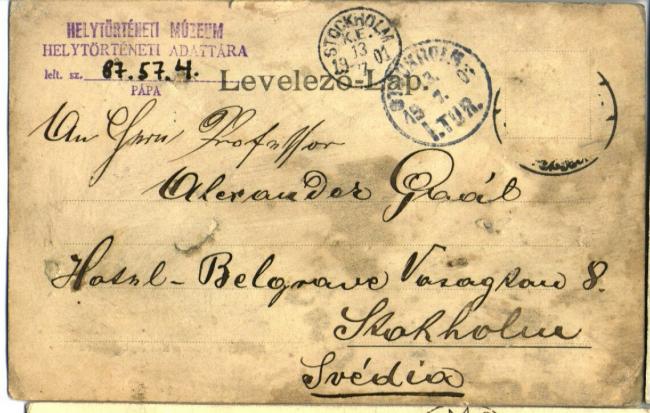 HELYTÖRTÉNETI MÚZEUM
HELYTÖRTÉNETI ADATTÁRA
lelt. sz. 87.57.4.
PÁPA
Levelező-Lap.
STOCKHOLM
K.E.
13
19 01
STOCKHOLM
1.TUR.
An Herrn Professor
Alexander Gaál
Hotel-Belgrave Vasagtan 8.
Stokholm
Svédia